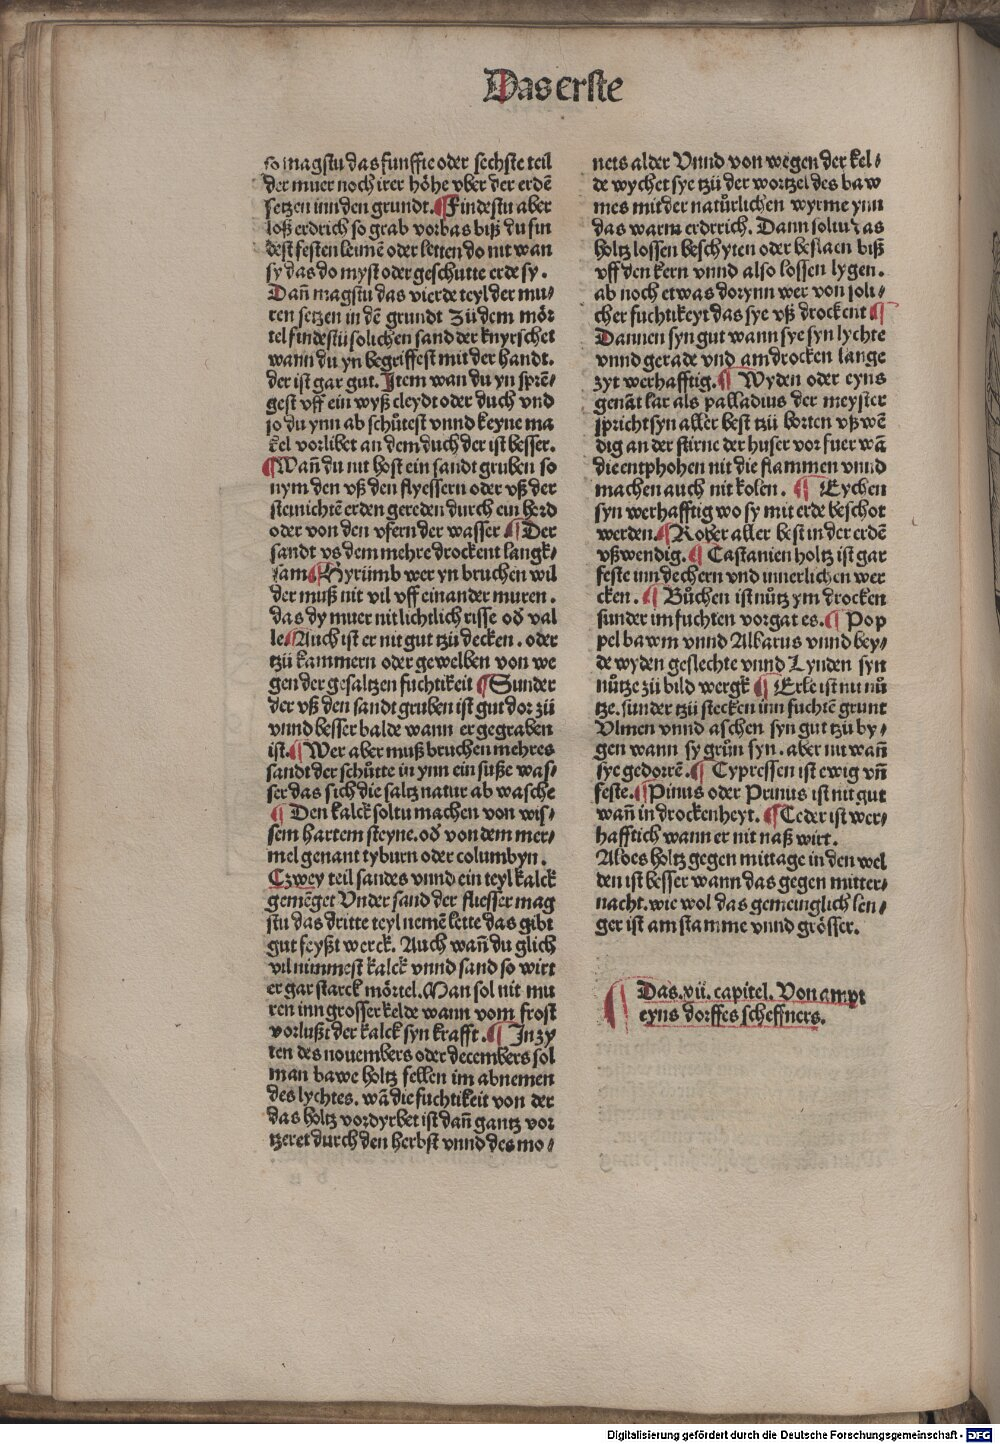 Das erste
so magstu das funffte oder sechste teil
der muer noch irer höhe vber der erdē
setzen inn den grundt. ¶ Findestu aber
loß erdrich so grab vorbas biß du fin
dest festen leimē oder letten do nit wan
sy das do myst oder geschutte erde sy.
Dañ magstu das vierde teyl der mu⸗
ren setzen in dē grundt Zů dem mör
tel findestu solichen sand der knyrschet
wann du yn begriffest mit der handt.
der ist gar gut. Item wan du yn sprē⸗
gest vff ein wyß cleydt oder duch vnd
so du ynn ab schůtest vnnd keyne ma
kel vorlibet an dem duch der ist besser.
¶ Wañ du nit host ein sandt gruben so
nym den vß den flyessern oder vß der
steinichtē erden gereden durch ein herd
oder von den vfern der wasser ¶ Der
sandt vs dem mehre drockent langk⸗
sam ¶ Hyrümb wer yn bruchen wil
der muß nit vil vff einander muren.
das dy muer nit lichtlich risse od̄ val
le ¶ Auch ist er nit gut tzü decken. oder
tzü kammern oder gewelben von we
gen der gesaltzen fuchtikeit ¶ Sunder
der vß den sandt gruben ist gut dor zü
vnnd besser balde wann er gegraben
ist. ¶ Wer aber muß bruchen mehres
sandt der schůtte in ynn ein suße was⸗
ser das sich die saltz natur ab wasche
¶ Den kalck soltu machen von wis⸗
sem hartem steyne. od̄ von dem mer⸗
mel genant tyburn oder columbyn.
Czwey teil sandes vnnd ein teyl kalck
gemēget Vnder sand der fliesser mag
stu das dritte teyl nemē lette das gibt
gut feyßt werck. Auch wañ du glich
vil nimmest kalck vnnd sand so wirt
er gar starck mörtel. Man sol nit mu
ren inn grosser kelde wann vom frost
vorlußt der kalck syn krafft. ¶ In zy
ten des nouembers oder decembers sol
man bawe holtz fellen im abnemen
des lychtes. wā die fuchtikeit von der
das holtz vordyrbet ist dañ gantz vor
tzeret durch den herbst vnnd des mo⸗
nets alder Vnnd von wegen der kel⸗
de wychet sye tzü der wortzel des baw
mes mit der natůrlichen wyrme ynn
das warm erdrrich. Dann soltu das
holtz lossen beschyten oder beslaen biß
vff den kern vnnd also lossen lygen.
ab noch etwas dorynn wer von soli⸗
cher fuchtikeyt das sye vß drockent ¶
Dannen syn gut wann sye syn lychte
vnnd gerade vnd am drocken lange
zyt werhafftig. ¶ Wyden oder eyns
genāt lar als palladius der meyster
spricht syn aller best tzü borten vß wē
dig an der stirne der huser vor fuer wā
die entphohen nit die flammen vnnd
machen auch nit kolen. ¶ Eychen
syn werhafftig wo sy mit erde beschot
werden. ¶ Rober aller best in der erdē
vßwendig. ¶ Castanien holtz ist gar
feste inn dechern vnd innerlichen wer
cken. ¶ Bůchen ist nůtz ym drocken
sunder im fuchten vorgat es. ¶ Pop
pel bawm vnnd Albarus vnnd bey⸗
de wyden geslechte vnnd Lynden syn
nůtze zü bild wergk ¶ Erle ist nit nů
tze. sunder tzü stecken inn fuchtē grunt
Vlmen vnnd aschen syn gut tzü by⸗
gen wann sy grůn syn. aber nit wañ
sye gedorrē. ¶ Cypressen ist ewig vñ
feste. ¶ Pinus oder Prinus ist nit gut
wañ in drockenheyt. ¶ Ceder ist wer⸗
hafftich wann er nit naß wirt.
Aldes holtz gegen mittage in den wel
den ist besser wann das gegen mitter⸗
nacht. wie wol das gemeinglich len⸗
ger ist am stamme vnnd grösser.
¶ Das .vii. capitel. Von ampt
eyns dorffes scheffners.
Digitalisierung gefördert durch die Deutsche Forschungsgemeinschaft - DFG